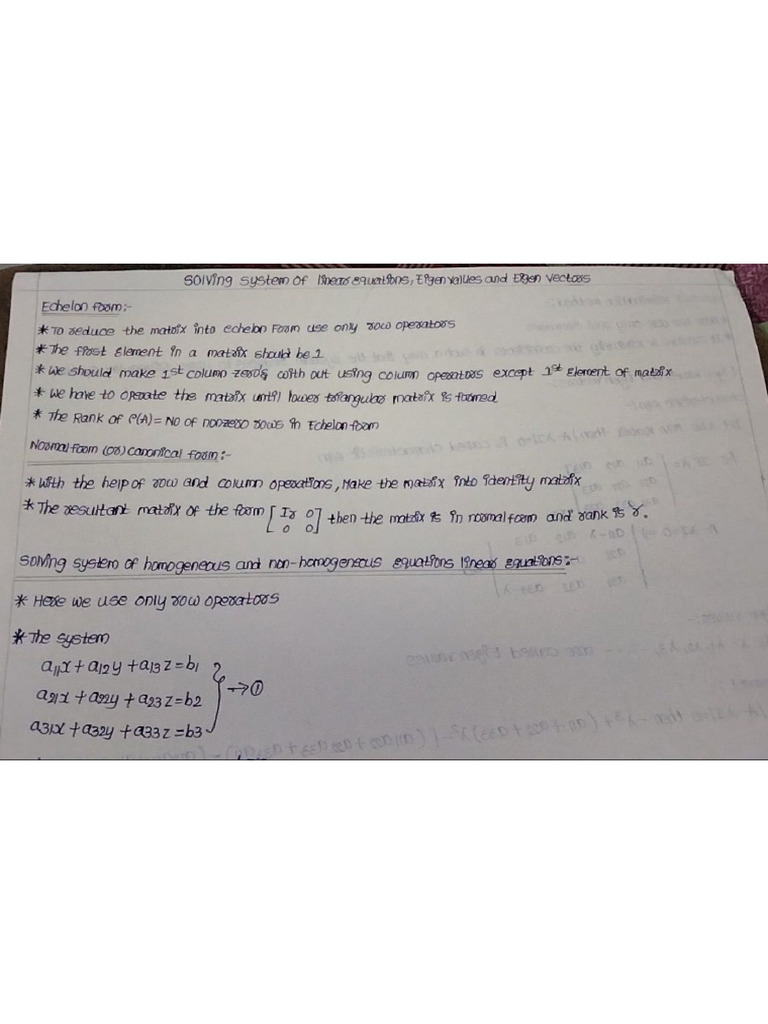 Solving system of linear equations, Eigen values and Eigen vectors
Echelon form:-
* To reduce the matrix into echelon Form use only row operators
* The first Element in a matrix should be 1
* We should make 1st column zero's with out using column operators except 1st Element of matrix
* We have to operate the matrix until lower triangular matrix is formed
* The Rank of ρ(A) = No of nonzero rows in Echelon form
Normal form (or) canonical form:-
* With the help of row and column operations, Make the matrix into identity matrix
* The resultant matrix of the form [Ir 0 0 0] then the matrix is in normal form and rank is r.
Solving system of homogeneous and non-homogeneous equations linear equations:-
* Here we use only row operators
* The system
a11x + a12y + a13z = b1
a21x + a22y + a23z = b2 → ①
a31x + a32y + a33z = b3